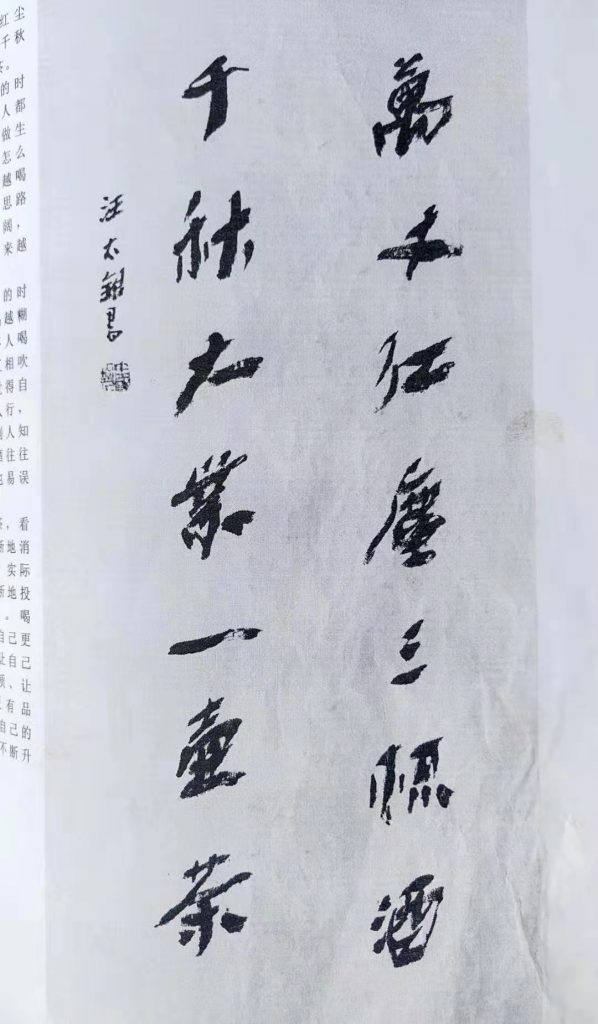 萬丈红塵三杯酒
千秋大業一壺茶
汪太書
红尘
千秋
茶。
的时
人都
做生
怎么
越喝
思路
阔，
来越
的时
越糊
人喝
相吹
觉得自
人行，
别人知
酒往往
也易误
茶，看
断地消
实际
断地投
。喝
自己更
让自己
、让
有品
自己的
不断升